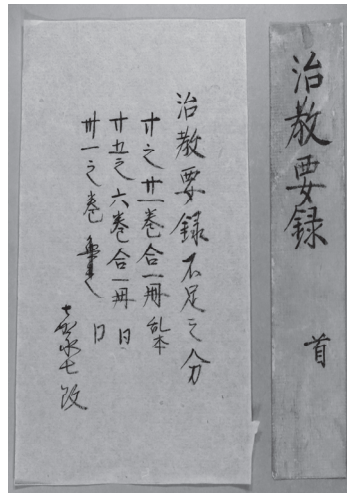 治教要録 首
治教要録不足之分
廿之廿一巻合一冊 乱本
廿五之六巻合一冊 〃 日
卅一之巻 日
嘉永七改